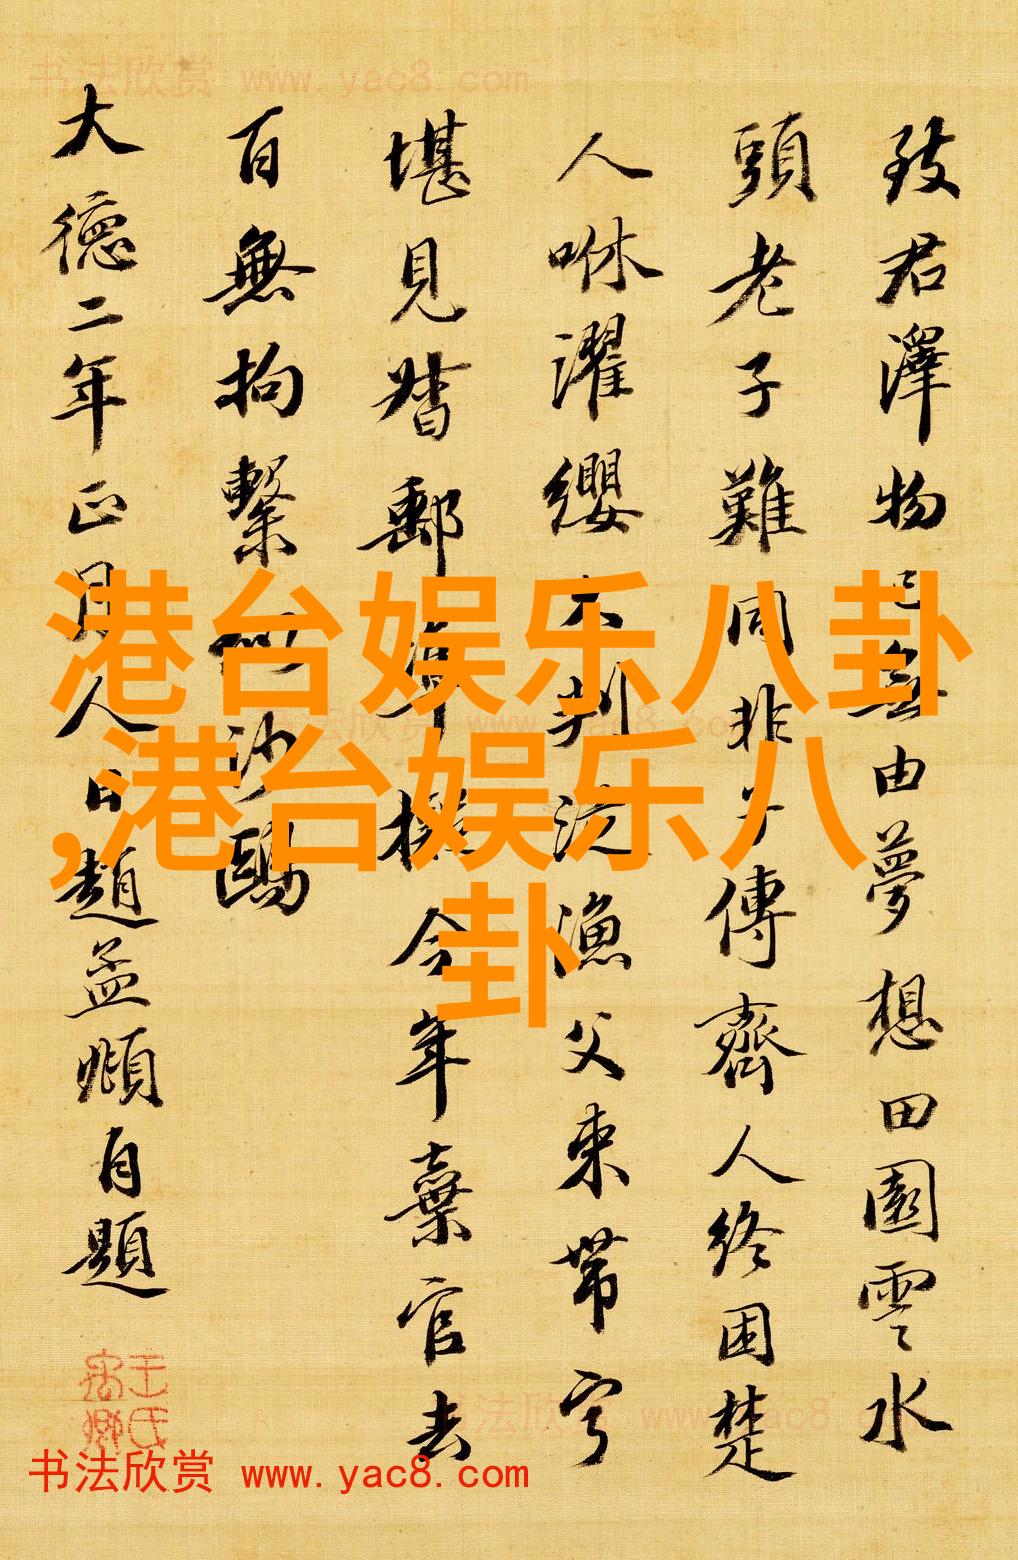 書法欣赏 www.yac8.com
致君澤物已無由夢想田園雲水
頭老子難同非子傳齊人終困楚
人咻濯纓久判從漁父束帶寧
堪見督郵準擬今年棄官去
百無拘繫似沙鷗
大德二年正月人日趙孟頫自題
港台娱乐八卦
,港台娱乐八
卦
书法欣赏 www.yac8.com
书法欣赏 www.yac8.com
书法欣赏 www.yac8.com